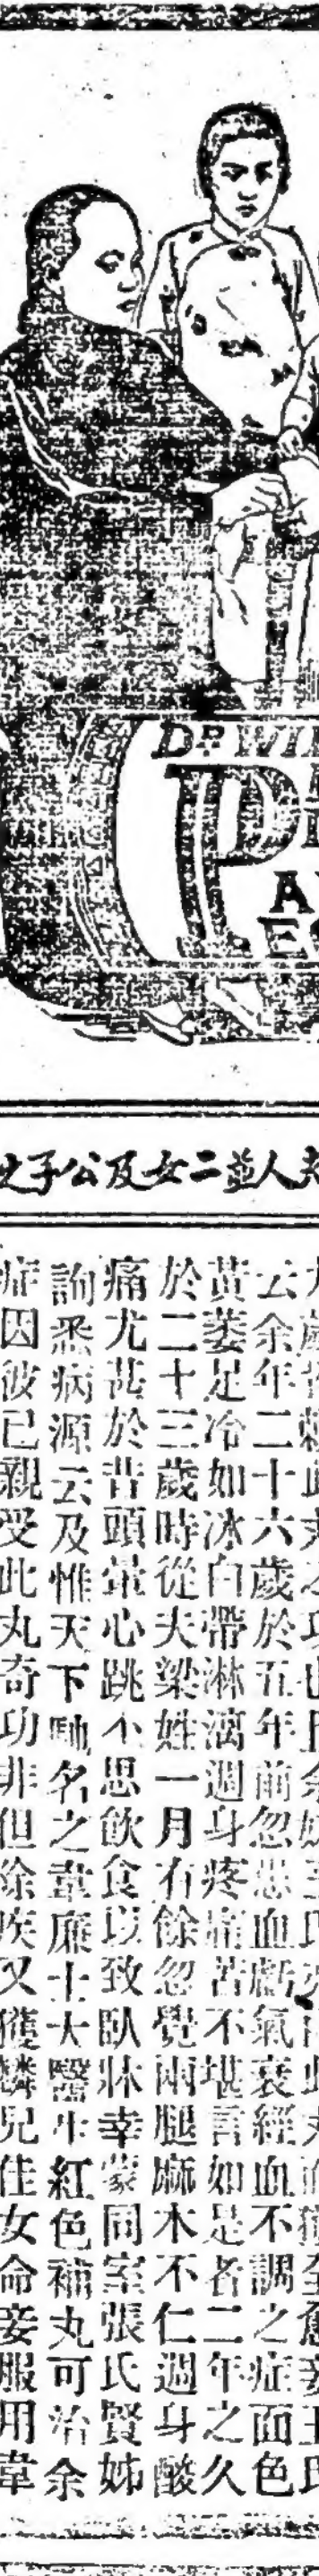 DR WIL
P
夫人並二女及公子之
云余年二十六歲於五年前忽患血虧氣衰經血不調之症面色
黃萎足冷如冰白帶淋漓週身疼痛苦不堪言如是者二年之久
於二十三歲時從夫梁姓一月有餘忽覺兩腿麻木不仁週身酸
痛尤甚於昔頭暈心跳不思飲食以致臥牀幸蒙同室張氏賢姊
詢悉病源云及惟天下馳名之韋廉士大醫生紅色補丸可治余
症因彼已親受此丸奇功非但除疾又獲麟兒佳女命妾服用韋